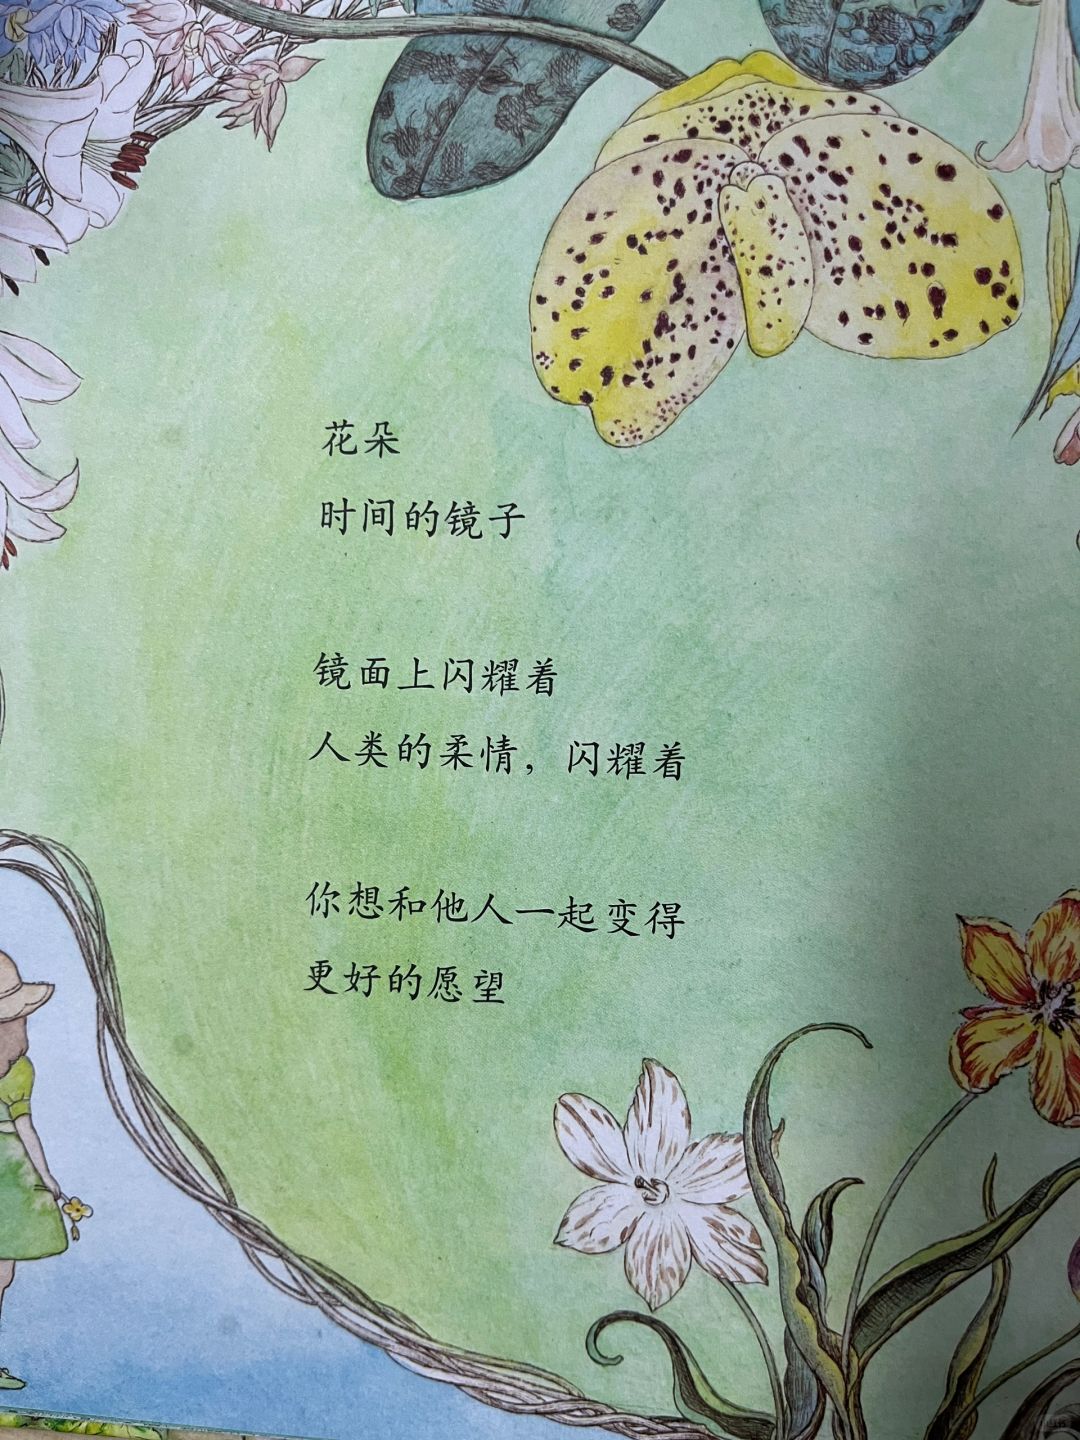 花朵
时间的镜子
镜面上闪耀着
人类的柔情，闪耀着
你想和他人一起变得
更好的愿望